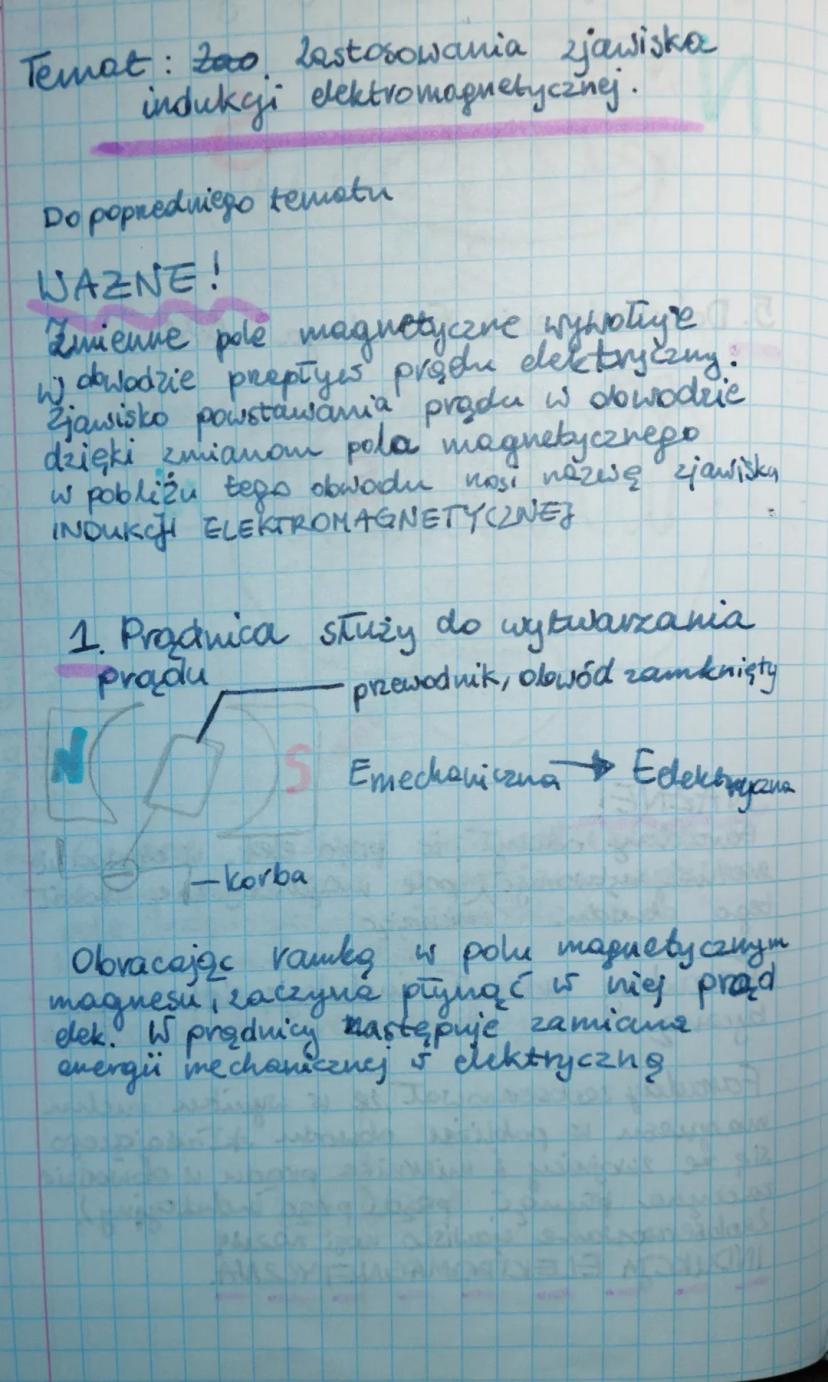 Temat: Zastosowania zjawiska
indukcji elektromagnetycznej.
Do poprzedniego tematu
WAŻNE!
Zmienne pole magnetyczne wywołuje
w obwodzie przepływ prądu elektryczny.
Zjawisko powstawania prądu w obwodzie
dzięki zmianom pola magnetycznego
w pobliżu tego obwodu nosi nazwę zjawiska
INDUKCJI ELEKTROMAGNETYCZNEJ
1. Prądnica służy do wytwarzania
prądu
przewodnik, obwód zamknięty
N
S
Emechaniczna → Eelektryczna
– korba
Obracając ramką w polu magnetycznym
magnesu, zaczyna płynąć w niej prąd
elek. W prądnicy następuje zamiana
energii mechanicznej w elektryczną